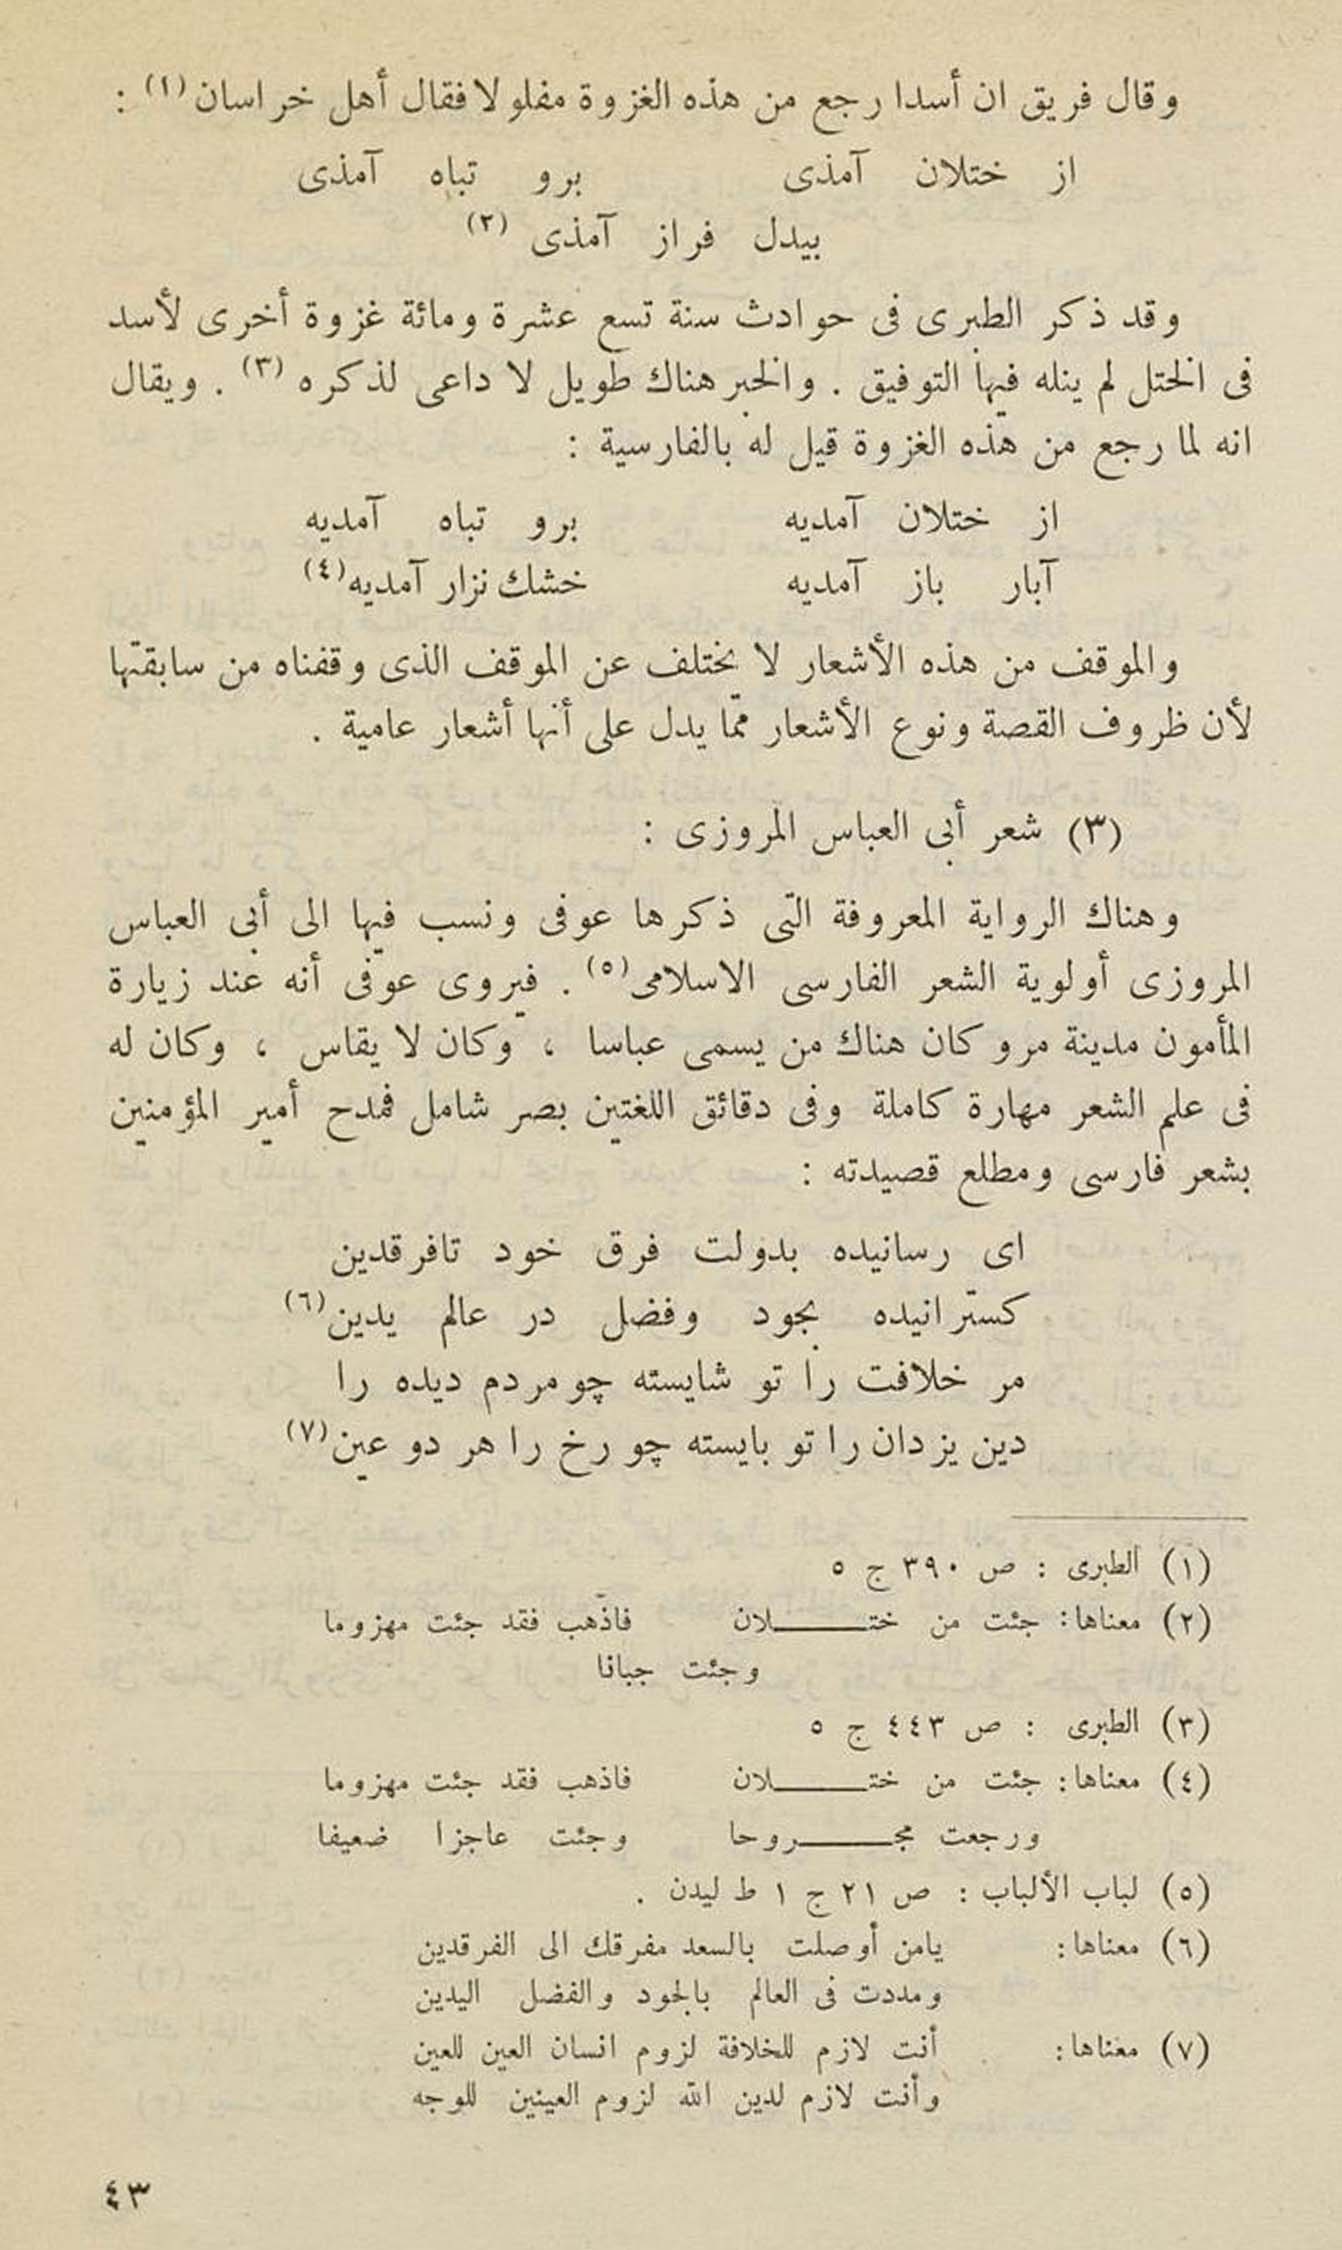 وقال فريق ان أسدا رجع من هذه الغزوة مفلولا فقال أهل خراسان (١) :
از ختلان آمذى برو تباه آمذى
بيدل فراز آمذى (٢)
وقد ذكر الطبرى فى حوادث سنة تسع عشرة ومائة غزوة أخرى لأسد
فى الختل لم ينله فيها التوفيق . والخبر هناك طويل لا داعى لذكره (٣) . ويقال
انه لما رجع من هذه الغزوة قيل له بالفارسية :
از ختلان آمديه برو تباه آمديه
آبار باز آمديه خشك نزار آمديه (٤)
والموقف من هذه الأشعار لا يختلف عن الموقف الذى وقفناه من سابقتها
لأن ظروف القصة ونوع الأشعار ممّا يدل على أنها أشعار عامية .
(٣) شعر أبى العباس المروزى :
وهناك الرواية المعروفة التى ذكرها عوفى ونسب فيها الى أبى العباس
المروزى أولوية الشعر الفارسى الاسلامى (٥) . فيروى عوفى أنه عند زيارة
المأمون مدينة مرو كان هناك من يسمى عباسا ، وكان لا يقاس ، وكان له
فى علم الشعر مهارة كاملة وفى دقائق اللغتين بصر شامل فمدح أمير المؤمنين
بشعر فارسى ومطلع قصيدته :
اى رسانيده بدولت فرق خود تافرقدين
كسترانيده بجود وفضل در عالم يدين (٦)
مر خلافت را تو شايسته چو مردم ديده را
دين يزدان را تو بايسته چو رخ را هر دو عين (٧)
(١) الطبرى : ص ٣٩٠ ج ٥
(٢) معناها : جئت من ختـــــلان فاذهب فقد جئت مهزوما
وجئت جبانا
(٣) الطبرى : ص ٤٤٣ ج ٥
(٤) معناها : جئت من ختـــــلان فاذهب فقد جئت مهزوما
ورجعت مجـــــروحا وجئت عاجزا ضعيفا
(٥) لباب الألباب : ص ٢١ ج ١ ط ليدن .
(٦) معناها : يامن أوصلت بالسعد مفرقك الى الفرقدين
ومددت فى العالم بالجود والفضل اليدين
(٧) معناها : أنت لازم للخلافة لزوم انسان العين للعين
وأنت لازم لدين الله لزوم العينين للوجه
٤٣